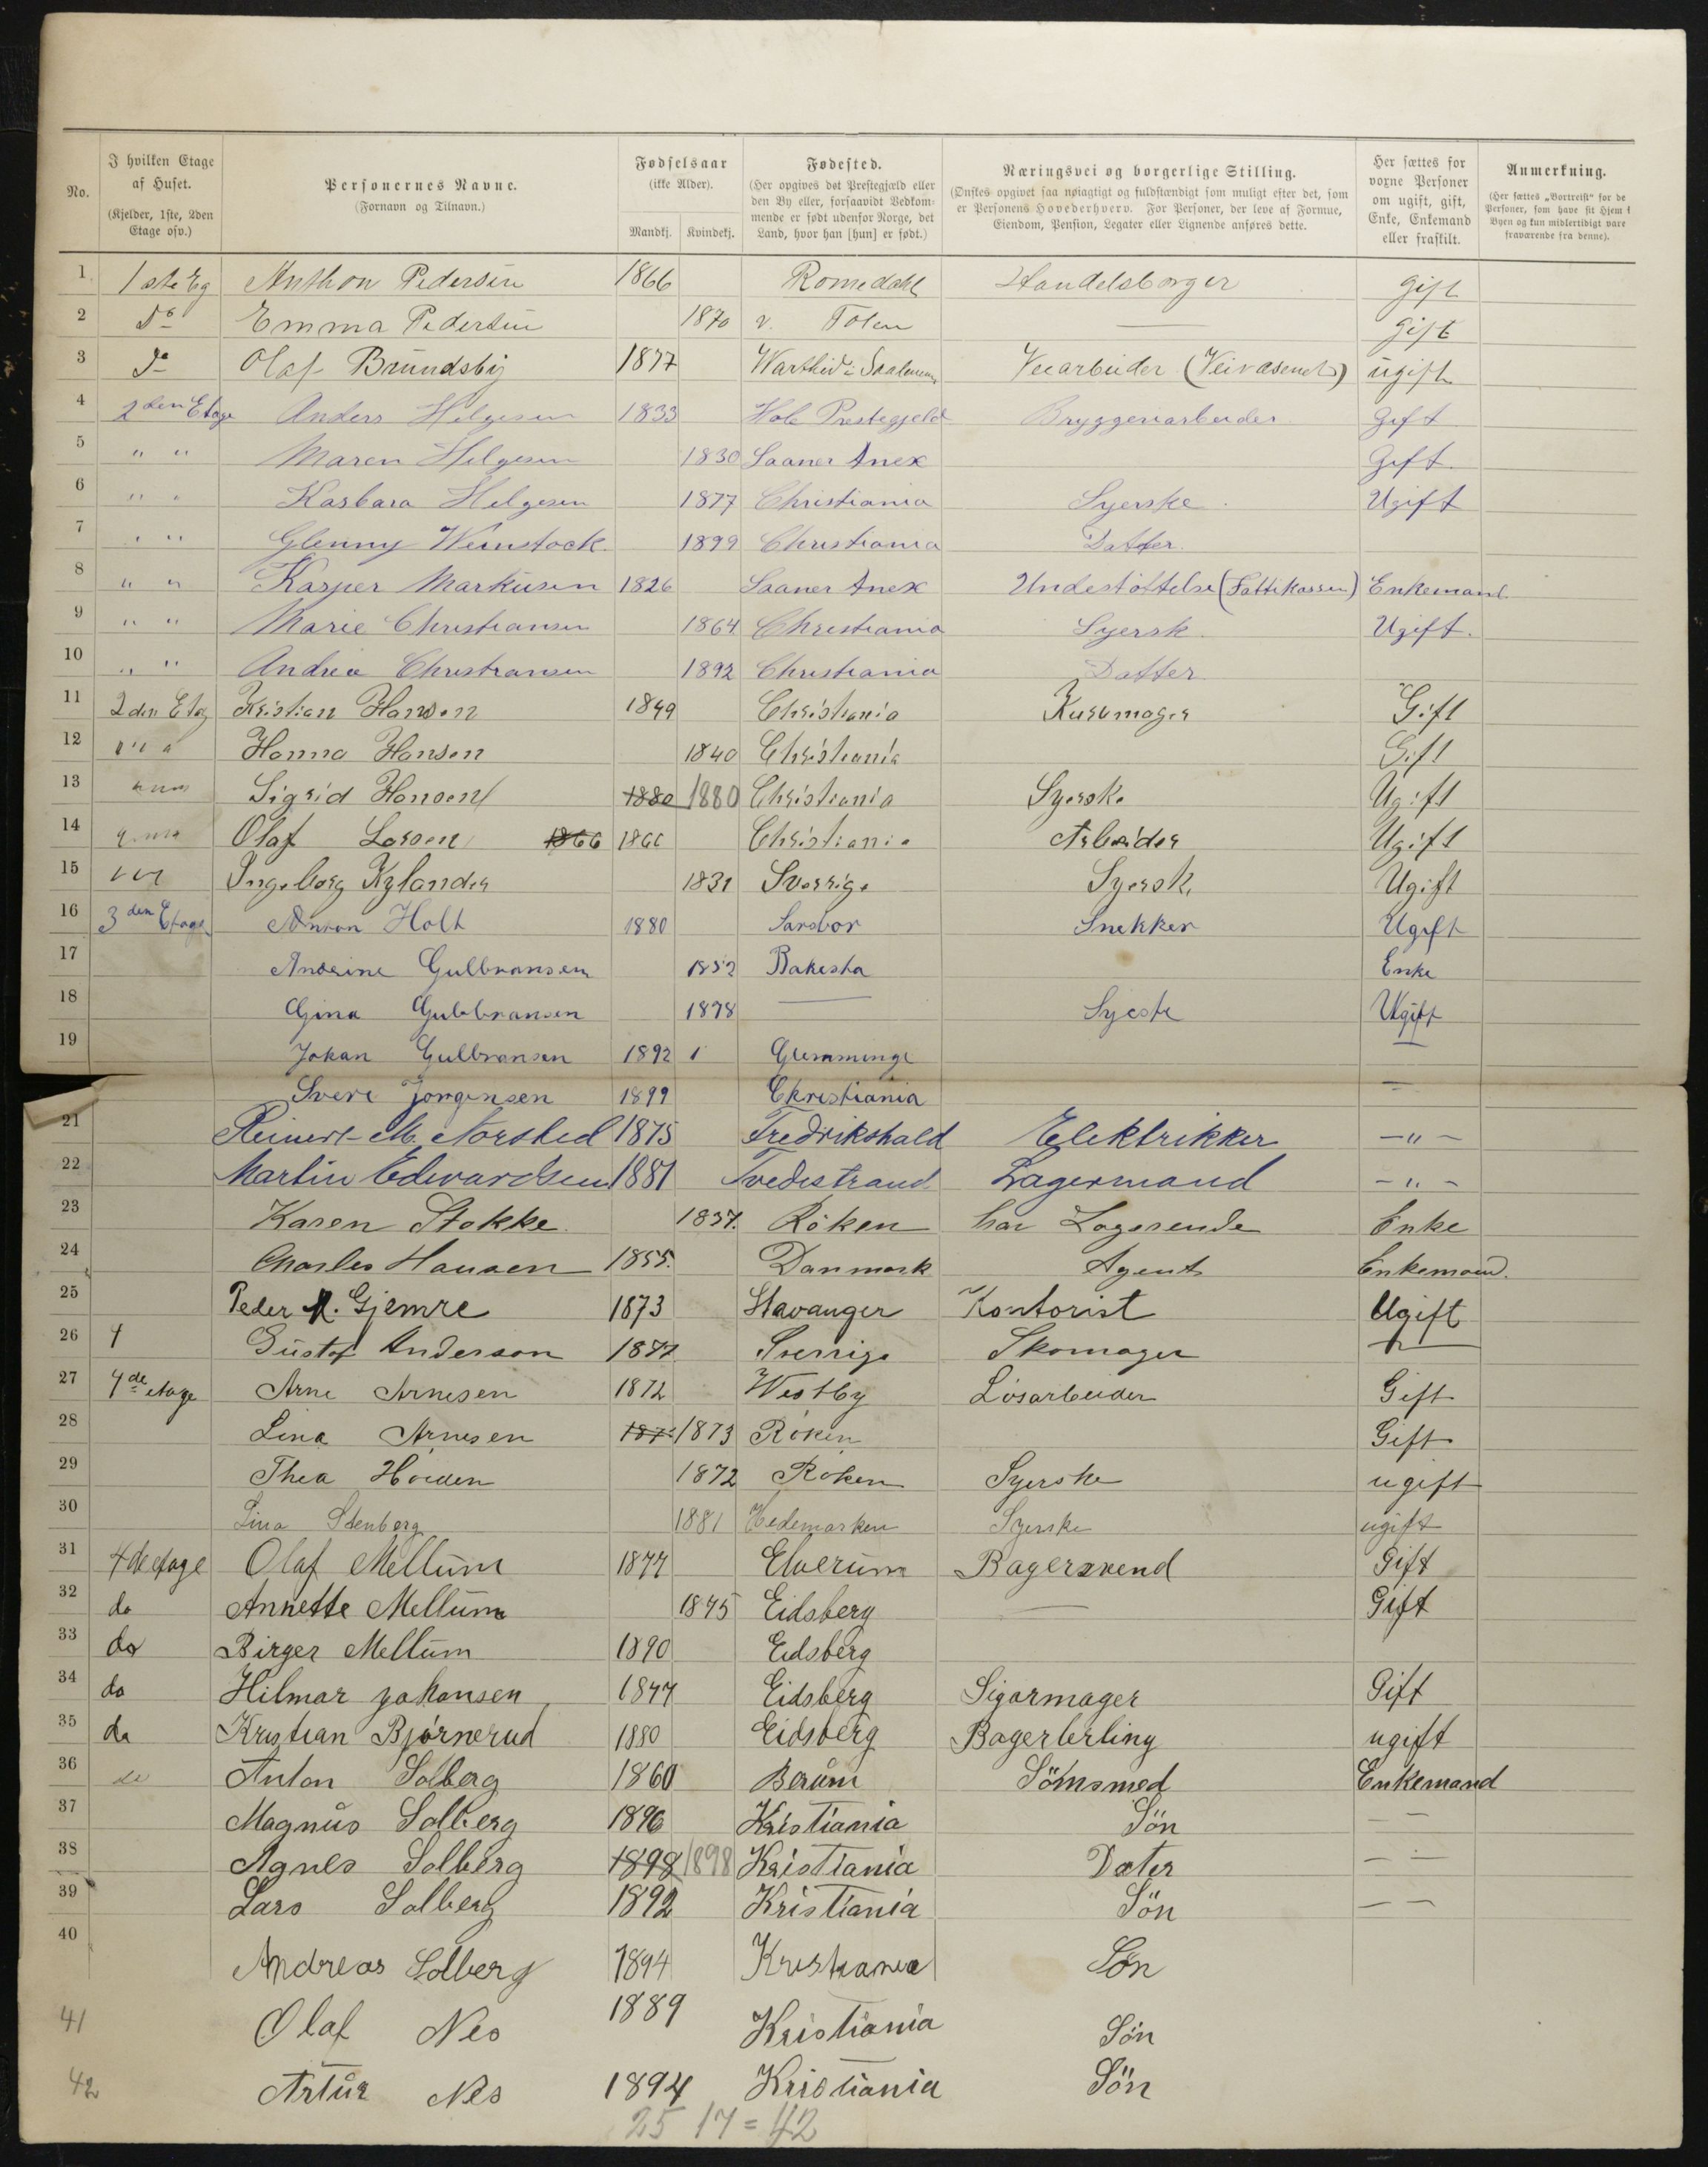 No.
I hvilken Etage af Huset.
(Kjelder, 1ste, 2den Etage osv.)
Personernes Navne.
(Fornavn og Tilnavn.)
Fødselsaar
(ikke Alder).
Mandkj. Kvindekj.
Fødested.
(Her opgives det Prestegjæld eller den By eller, forsaavidt Vedkommende er født udenfor Norge, det Land, hvor han [hun] er født.)
Næringsvei og borgerlige Stilling.
(Ønskes opgivet saa nøiagtigt og fuldstændigt som muligt efter det, som er Personens Hovederhverv. For Personer, der leve af Formue, Eiendom, Pension, Legater eller Lignende anføres dette.
Her sættes for voxne Personer om ugift, gift, Enke, Enkemand eller fraskilt.
Anmerkning.
(Her sættes „Bortreist“ for de Personer, som have sit Hjem i Byen og kun midlertidigt vare fraværende fra denne).
1 1ste Eg Anthon Pedersen 1866 Romedahl Handelsborger gift
2 Do Emma Pedersen 1870 v. Toten — gift
3 Do Olaf Brundsby 1877 Veiarbeider (Veivæsenet) ugift
4 2den Etage Anders Helgesen 1833 Hole Prestegjeld Bryggeriarbeider Gift
5 " " Maren Helgesen 1830 Saaner Anex Gift.
6 " " Karbara Helgesen 1877 Christiania Syerske Ugift
7 " " Glenny Weinstock 1899 Christiania Datter.
8 " " Kasper Markusen 1826 Saaner Anex Undestøttelse (Fattikassen) Enkemand
9 " " Marie Christiansen 1864 Christiania Syersk Ugift.
10 " " Andrea Christiansen 1892 Christiania Datter
11 2den Etag Kristian Hansen 1849 Christiania Kurvmager Gift
12 " " " Hanna Hansen 1840 Christiania Gift
13 Sigrid Hansen 1880 1880 Christiania Syerske Ugift
14 Olaf Larsen 1866 1866 Christiania Arbeider Ugift
15 Ingeborg Kylander 1831 Sverrige Syersk Ugift
16 3den Etage Anton Holt 1880 Sarsbor Snekker Ugift
17 Andrine Gulbransen 1852 Bakesha Enke
18 Gina Gulbbransen 1878 — Syeste Ugift
19 Johan Gulbransen 1892 1 Glemminge —
Svere Jorgensen 1899 Christiania —
21 Reinert M. Norsted 1875 Fredrikshald Elektrikker — " —
22 Martin Edvardsen 1881 Tvedestrand Lagermand — " —
23 Karen Stokke 1837. Röken har Logerende Enke
24 Charles Hansen 1855. Danmark Agent Enkemand.
25 Peder A. Gjemre 1873 Stavanger Kontorist Ugift
26 4 Gustaf Anderson 1877 Sverrige Skomager —"—
27 4de etage Arne Arnesen 1872 Westby Løsarbeider Gift
28 Lina Arnesen 1873 1873 Röken Gift
29 Thea Hoiden 1872 Roken Syerske ugift
30 Lina Stenberg 1881 Hedemarken Syerske ugift
31 4de etage Olaf Mellum 1877 Elverum Bagersvend Gift
32 do Annette Mellum 1875 Eidsberg — Gift
33 do Birger Mellum 1890 Eidsberg
34 do Hilmar Johansen 1877 Eidsberg Sigarmager Gift
35 do Kristian Bjørnerud 1880 Eidsberg Bagerlerling ugift
36 do Anton Solberg 1860 Berum Sömsmed Enkemand
37 Magnus Solberg 1896 Kristiania Sön — —
38 Agnes Solberg 1898 1898 Kristiania Dater — —
39 Lars Solberg 1892 Kristiania Sön — —
40 Andreas Solberg 1894 Kristiania Søn
41 Olaf Nes 1889 Kristiania Sön
42 Artur Nes 1894 Kristiania Sön
25 17 = 42